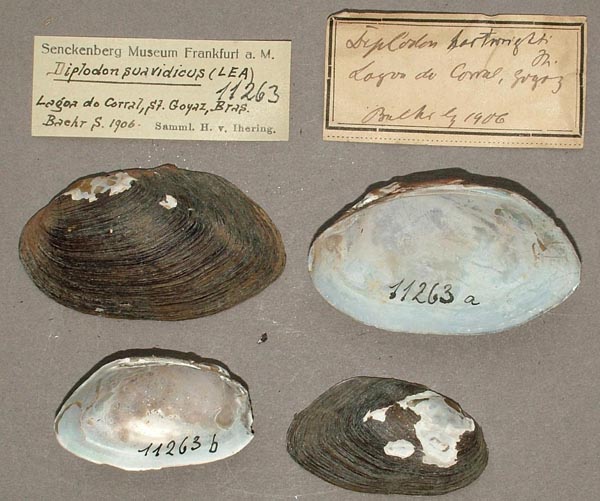 Senckenberg Museum Frankfurt a. M.
Diplodon suavidicus (LEA)
11263
Lagoa do Corral, St. Goyaz, Bras.
Baehr S. 1906. Samml. H. v. Ihering.
Diplodon hartwrighti
Jh.
Lagoa do Corral, Goyaz
1906
11263 a
11263 b